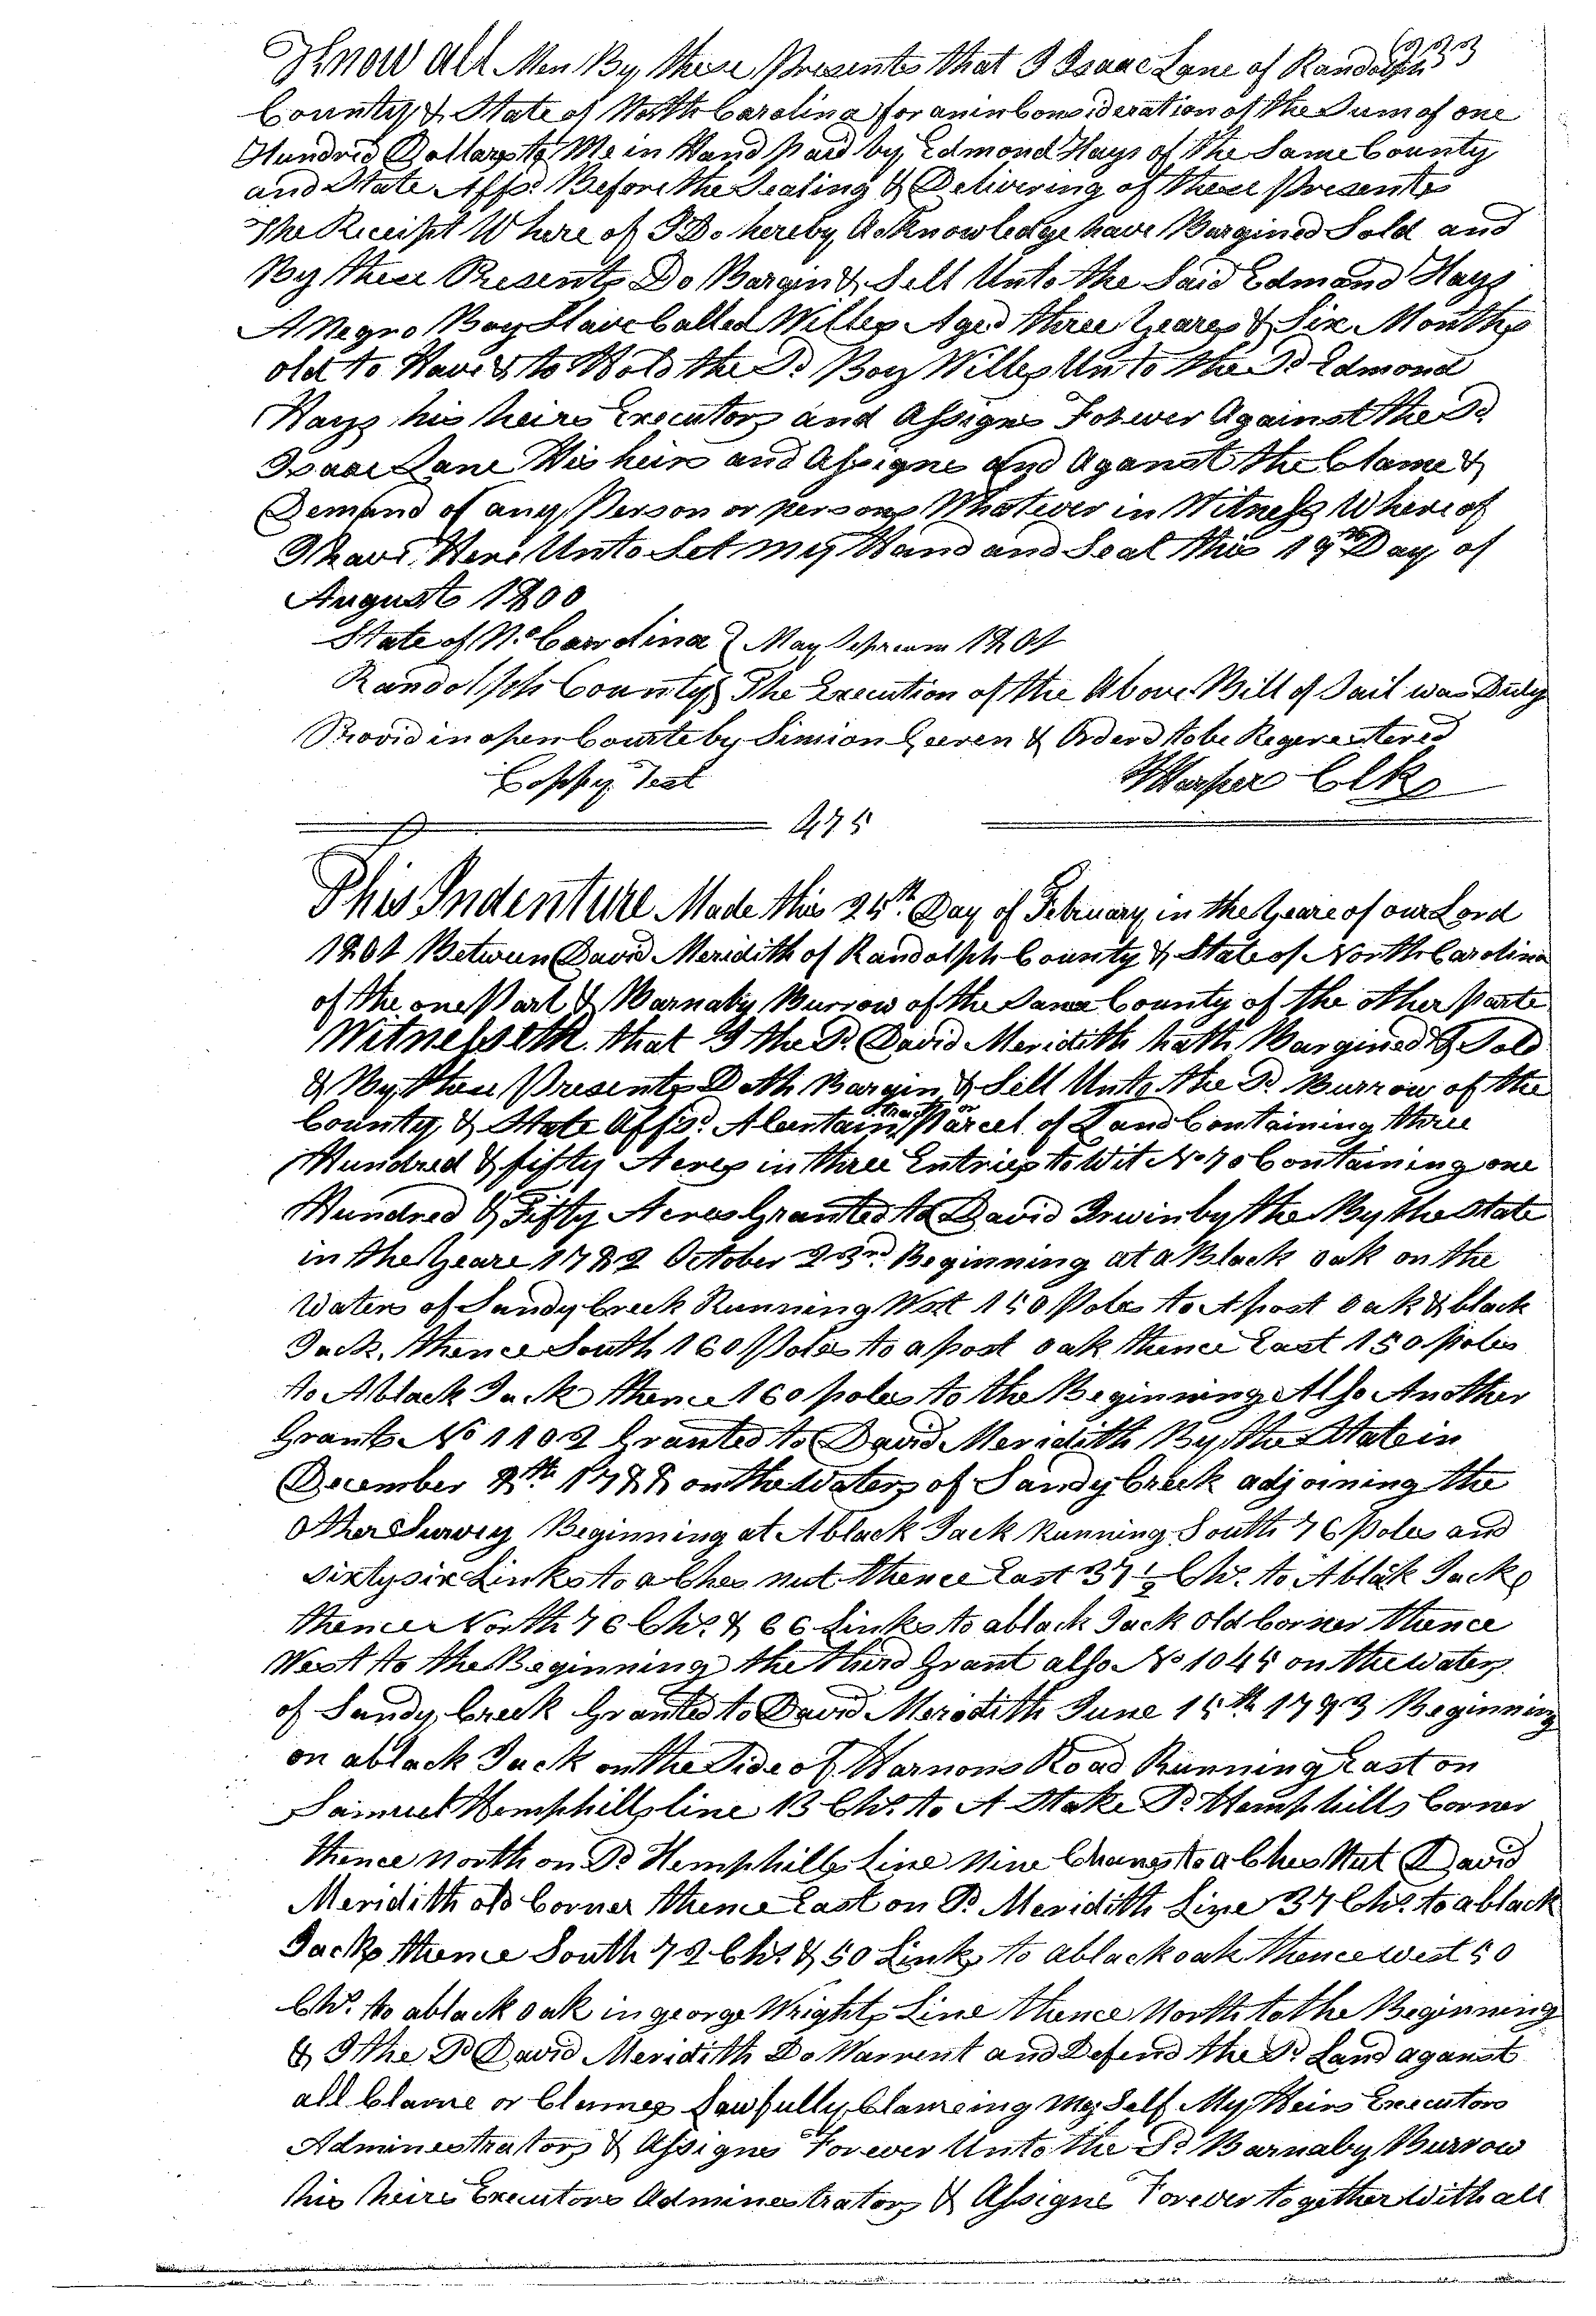 333
Know All Men By these Presents that I Isaac Lane of Randolph
County & State of North Carolina for an in Consideration of the Sum of one
Hundred Dollars to Me in Hand paid by Edmond Hays of the Same County
and State Affsd. Before the Sealing & Delivering of these Presents
The Receipt Where of I Do hereby Acknowledge have Bargined Sold and
By these Presents Do Bargin & Sell Unto the Said Edmand Hays
A Negro Boy Slave Called Willes Aged three Years & Six Months
old to Have & to Hold the Sd Boy Willes Unto the Sd Edmond
Hays his heirs Executors and Assigns Forever Against the Sd
Isaac Lane His heirs and Assigns and Aganst the Clame &
Demand of any Person or persons Whatever in Witness Where of
I have Here Unto Set my Hand and Seal this 19th Day of
August 1800
State of No. Carolina } May Sesscion 1801
Randolph County } The Execution of the Above Bill of Sail was Duly
Provid in open Courte by Simion Geeren & Orderd to be Regerestered
Coppy Test Harper Clk
475
This Indenture Made this 25th. Day of February in the Yeare of our Lord
1801 Between David Meridith of Randolph County & State of North Carolina
of the one Part & Barnaby Burrow of the Same County of the other parte
Witnesseth that I the Sd. David Meridith hath Bargined & Sold
& By these Presents Doth Bargin & Sell Unto the Sd. Burrow of the
County & State Affsd. A Ceartain tract or Parcel of Land Containing three
Hundred & fifty Acres in three Entries to Wit No 70 Containing one
Hundred & Fifty Acres Granted to David Irwin by the By the State
in the Yeare 1782 October 23rd. Beginning at a Black oak on the
Waters of Sandy Creek Running West 150 Poles to A post oak & black
Jack, thence South 160 Poles to a post oak thence East 150 poles
to A black Jack thence 160 poles to the Beginning Also Another
Grant No 1102 Granted to David Meridith By the State in
December 2th. 1788 on the Waters of Sandy Creek adjoining the
Other Survey Beginning at A black Jack Running South 76 Poles and
sixty six Links to a Ches nut thence East 37 1/2 Chs. to A black Jack
thence North 76 Chs. & 66 Links to a black Jack Old Corner thence
West to the Beginning the third Grant also No 1045 on the Waters
of Sandy Creek Granted to David Meridith June 15th 1793 Beginning
on a black Jack on the Side of Harnons Road Running East on
Samuel Hemphills line 13 Chs. to A Stake Sd. Hemphills Corner
thence north on Sd Hemphills Line Nine Chanes to a Ches Nut David
Meridith old Corner thence East on Sd. Meridith Line 37 Chs. to a black
Jack thence South 72 Chs. & 50 Links to a black oak thence west 50
Chs. to a black oak in george Wrights Line thence North to the Beginning
& I the Sd David Meridith Do Warrent and Defend the Sd Land aganst
all Clame or Clames Lawfully Clameing My Self My Heirs Executors
Adminestrators & Assigns Forever Unto the Sd Barnaby Burrow
his heirs Executors Adminestrators & Assigns Forever together With all